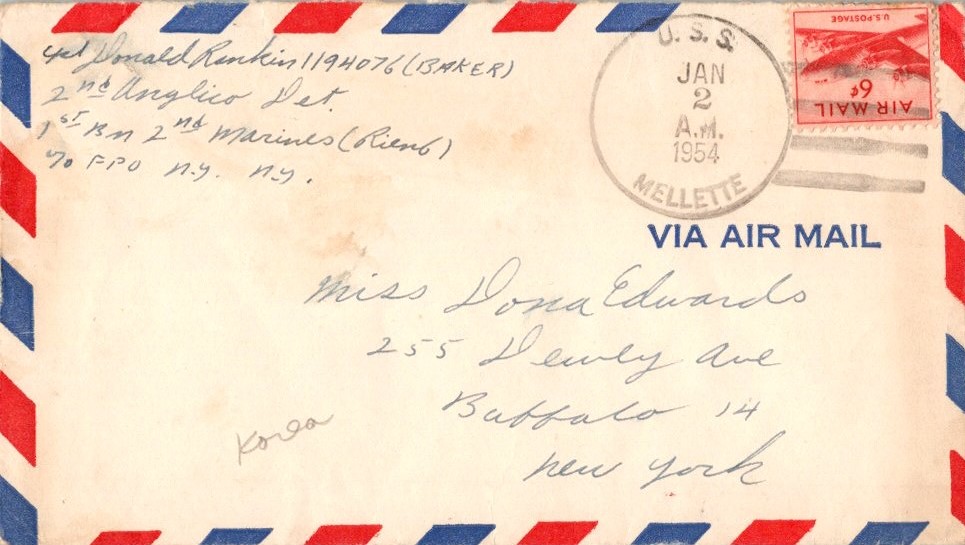 Pvt Donald Rankin 1194076 (BAKER)
2nd Anglico Det.
1st Bn 2nd Marines (Rienf)
c/o FPO N.Y. N.Y.
U.S.S.
JAN
2
A.M.
1954
MELLETTE
U.S. POSTAGE
6¢
AIR MAIL
VIA AIR MAIL
Miss Dona Edwards
255 Dewey Ave
Buffalo 14
New York
Korea